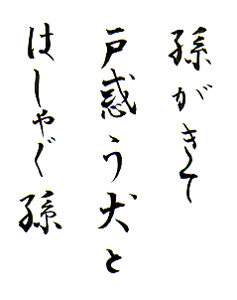 孫がきて
戸惑う犬と
はしゃぐ孫